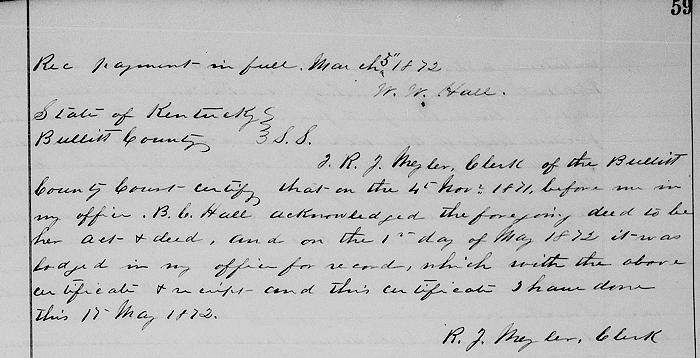 59
Rec payment in full. March 5" 1872
W. W. Hall.
State of Kentucky }
Bullitt County } S.S.
I. R. J. Meyler, Clerk of the Bullitt
County Court certify that on the 4th Nov: 1871, before me in
my office. B. C. Hall acknowledged the foregoing deed to be
her act & deed, and on the 1st day of May 1872 it was
lodged in my office for record, which with the above
certificate & receipt and this certificate I have done
this 1st May 1872.
R. J. Meyler, Clerk